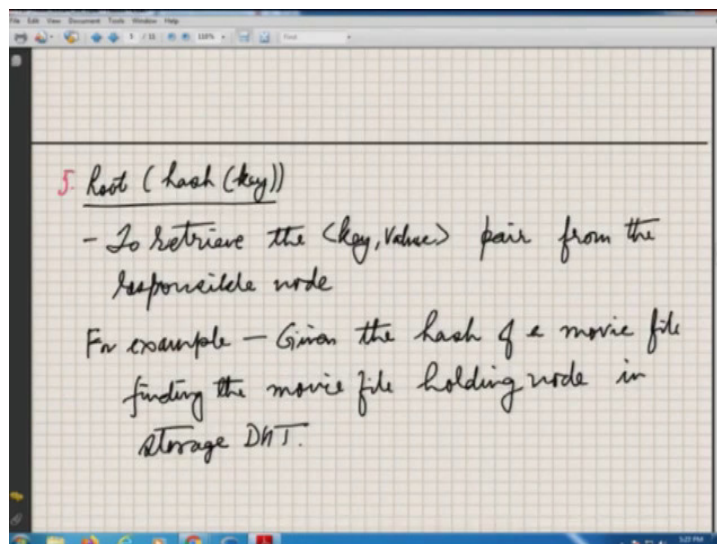 File Edit View Document Tools Window Help
5 / 11 118% Find
5. Root (hash (key))
- To retrieve the <key, Value> pair from the
responsible node
For example - Given the hash of a movie file
finding the movie file holding node in
storage DHT.
5:23 PM